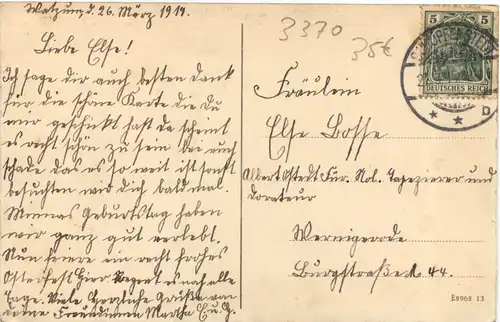 Watzum, d. 26. März 1914.
Liebe Else!
Ich sage dir auch besten Dank
für die schöne Karte die Du
mir geschickt hast da scheint
es recht schön zu sein bei euch
schade das es so weit ist sonst
besuchten wir dich bald mal.
Minnas Geburtstag haben
wir ganz gut verlebt.
Nun feiere ein recht frohes
Osterfest hier Regent es nach alle
Tage. Viele herzliche Grüße von
deine Freundinnen Martha E. u. G.
3370
35€
5 5
DEUTSCHES REICH
SCHÖPPENSTEDT
* * D
Fräulein
Else Bosse
Albert Ostedt Für. Nol. Tapezierer und
Dorateur
Wernigerode
Burgstraße 44.
E8968 13